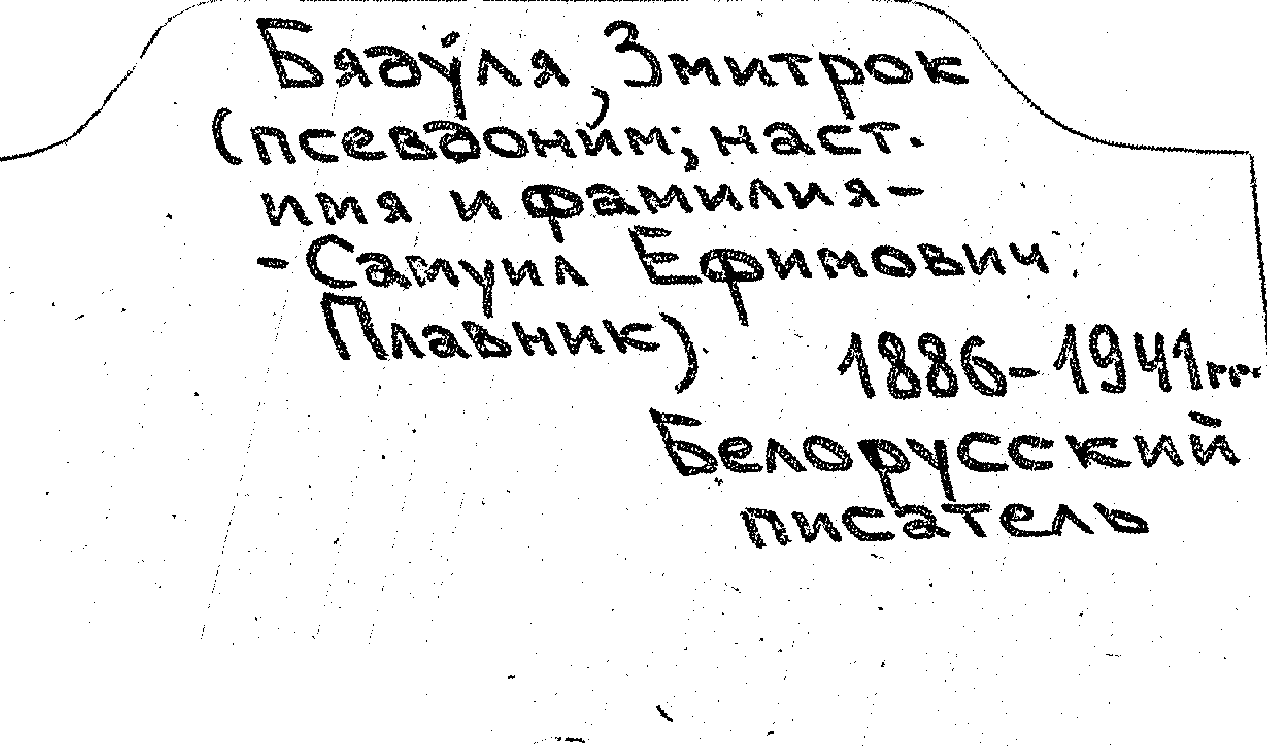 Бяду́ля, Змитрок
(псевдоним; наст.
имя и фамилия-
-Самуил Ефимович
Плавник)
1886-1941гг.
Белорусский
писатель